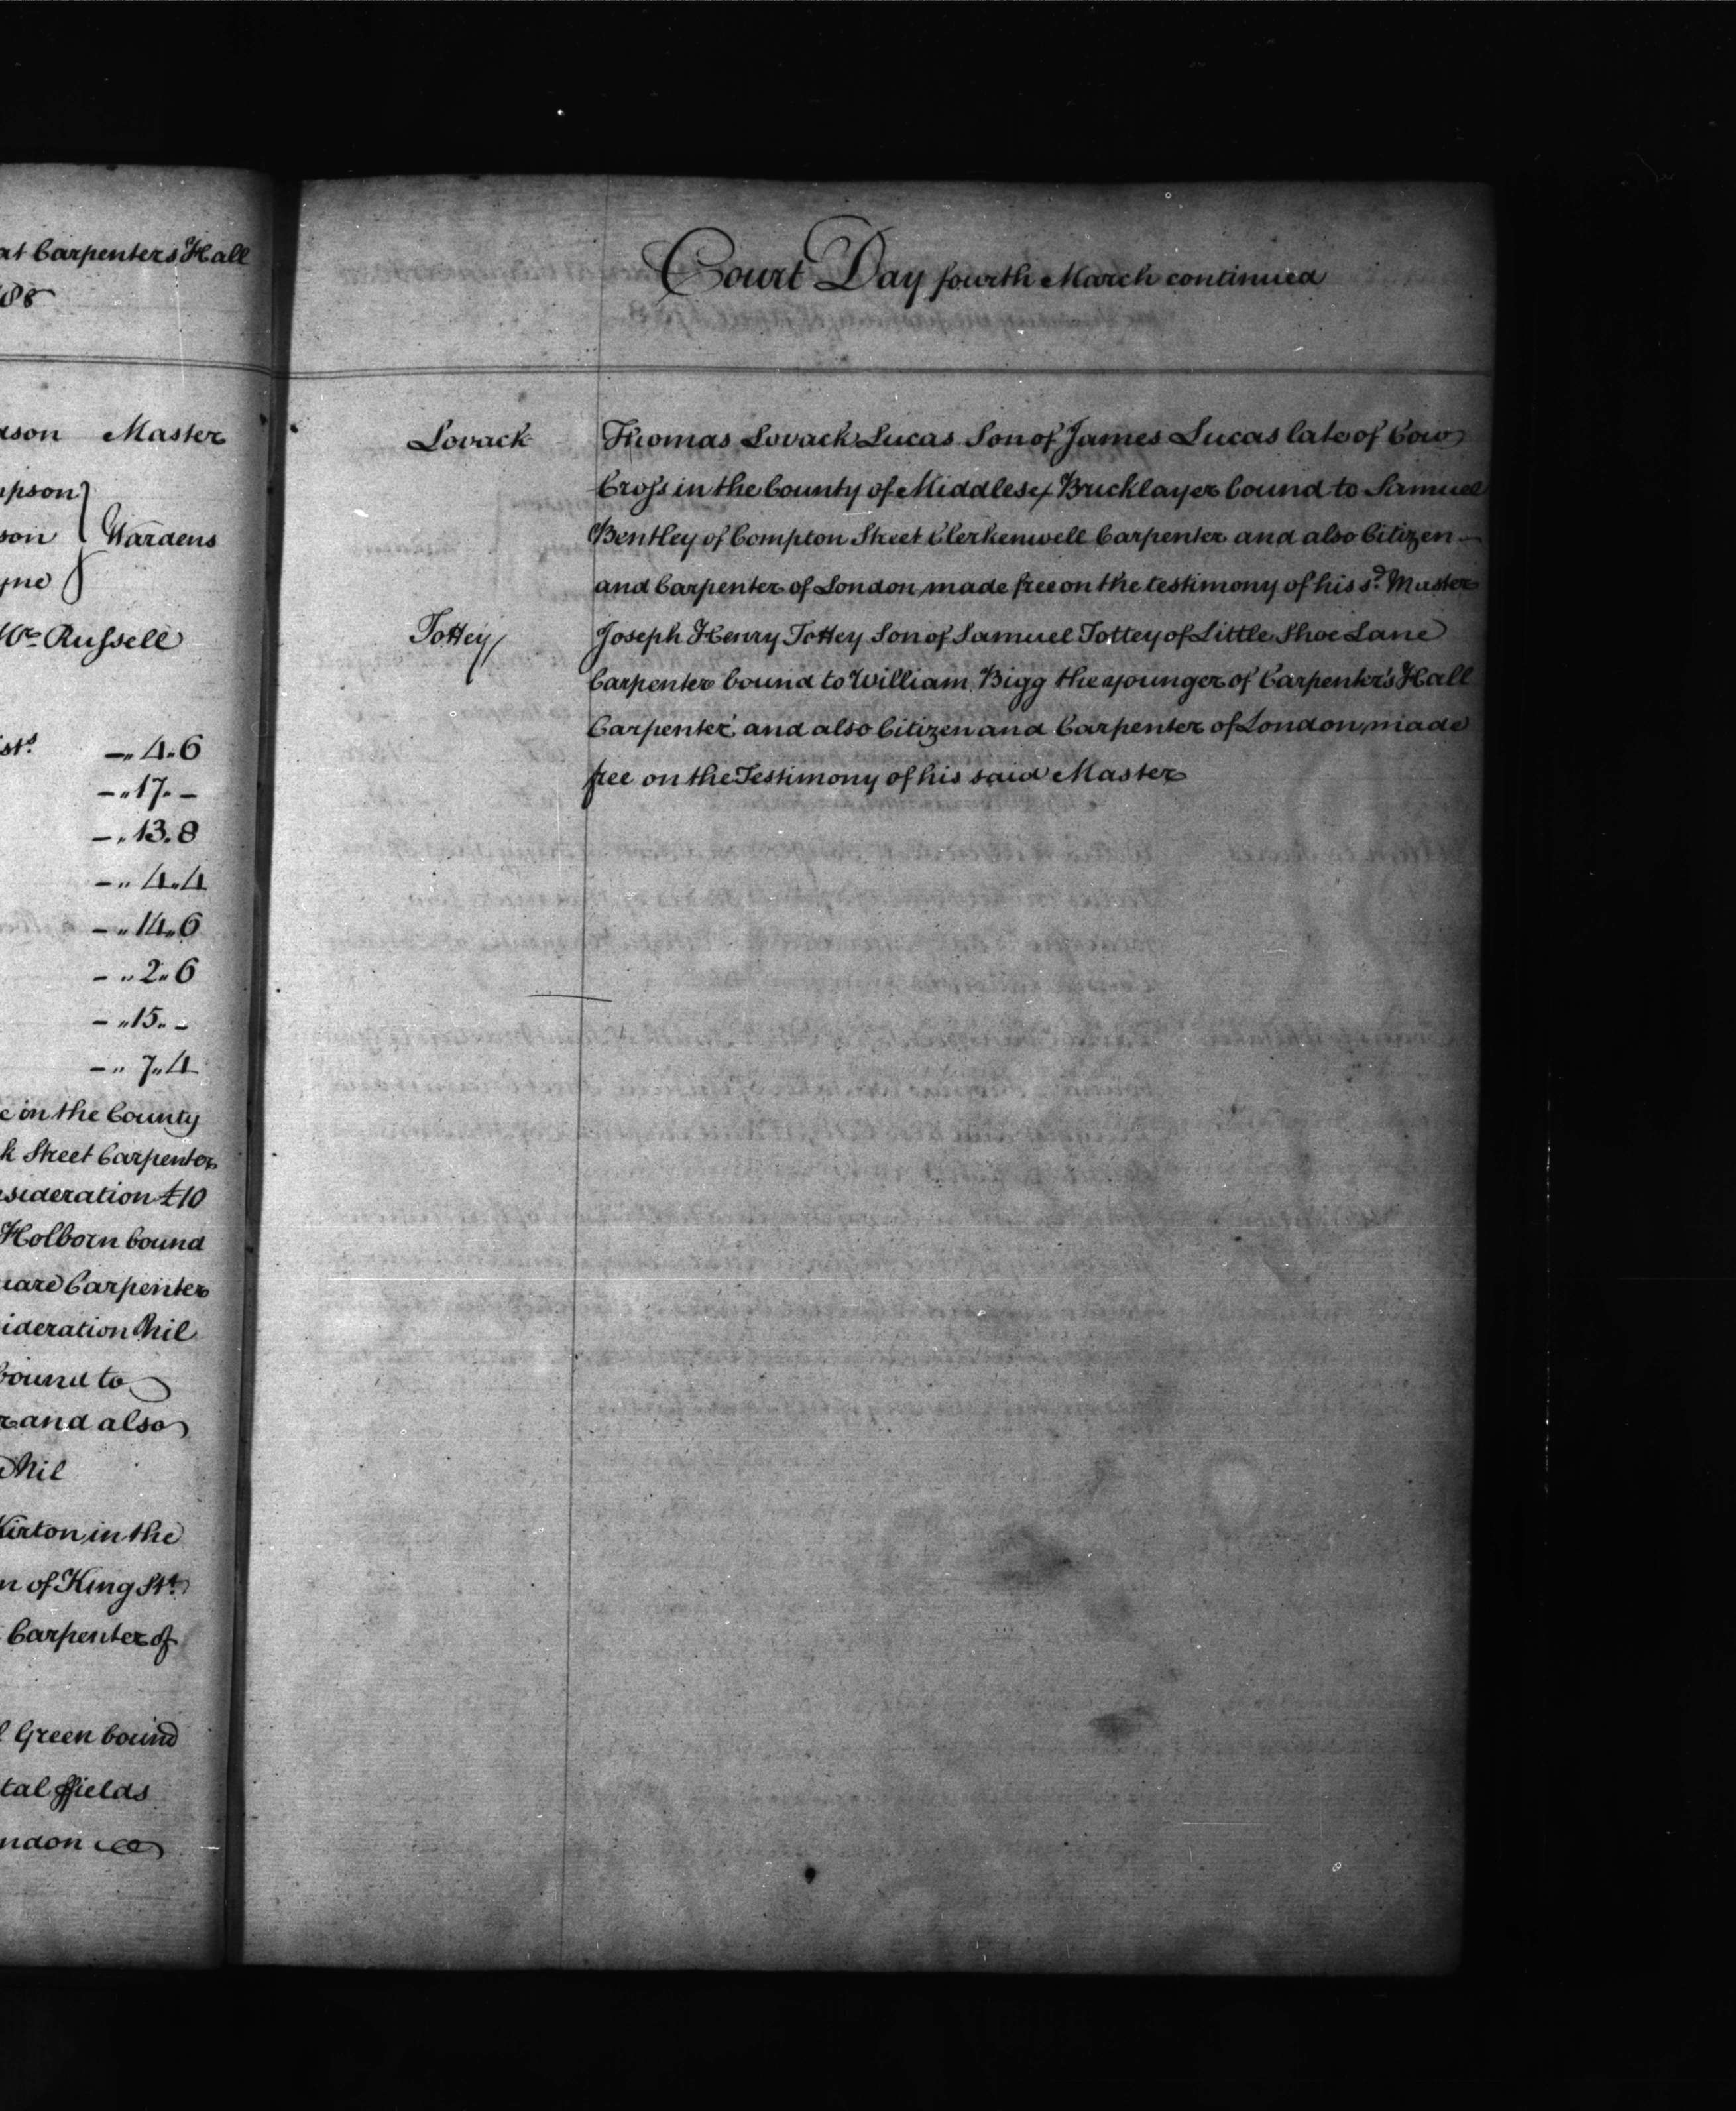 at Carpenters Hall
88
Master
Wardens
Mr. Russell
-"4"6
-"17"-
-"13"8
-"4"4
-"14"6
-"2"6
-"15"-
-"7"4
in the County
Street Carpenter
£10
Holborn bound
Carpenter
Nil
bound to
and also
Nil
Kirton in the
of King St.
Carpenter of
Green bound
ffields
Court Day fourth March continued
Lovack
Thomas Lovack Lucas Son of James Lucas late of Cow
Cross in the County of Middlesex Bricklayer bound to Samuel
Bentley of Compton Street Clerkenwell Carpenter and also Citizen
and Carpenter of London made free on the testimony of his sd. Master
Tottey
Joseph Henry Tottey Son of Samuel Tottey of Little Shoe Lane
Carpenter bound to William Bigg the younger of Carpenter's Hall
Carpenter and also Citizen and Carpenter of London made
free on the Testimony of his said Master